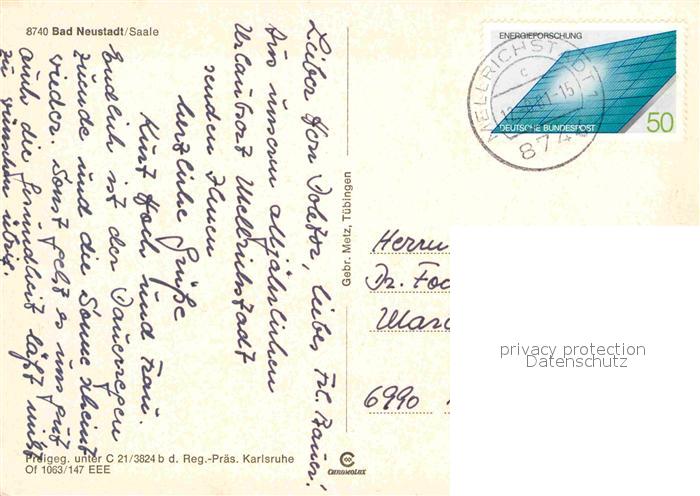 8740 Bad Neustadt/Saale
Lieber Herr Doktor, liebes Frl. Bauer!
Aus unserem alljährlichen
Urlaubsort Mellrichstadt
senden Ihnen
herzliche Grüße
Kurt Hoch und Frau.
Endlich ist der Dauerregen
zuende und die Sonne scheint
wieder. Sonst geht es uns gut
auch die Gesundheit läßt nichts
zu wünschen übrig.
Freigeg. unter C 21/3824 b d. Reg.-Präs. Karlsruhe
Of 1063/147 EEE
Gebr. Metz, Tübingen
CHROMOLUX
ENERGIEFORSCHUNG
DEUTSCHE BUNDESPOST
50
MELLRICHSTADT 1
c
-15
874
Herrn
Dr.
6990
privacy protection
Datenschutz